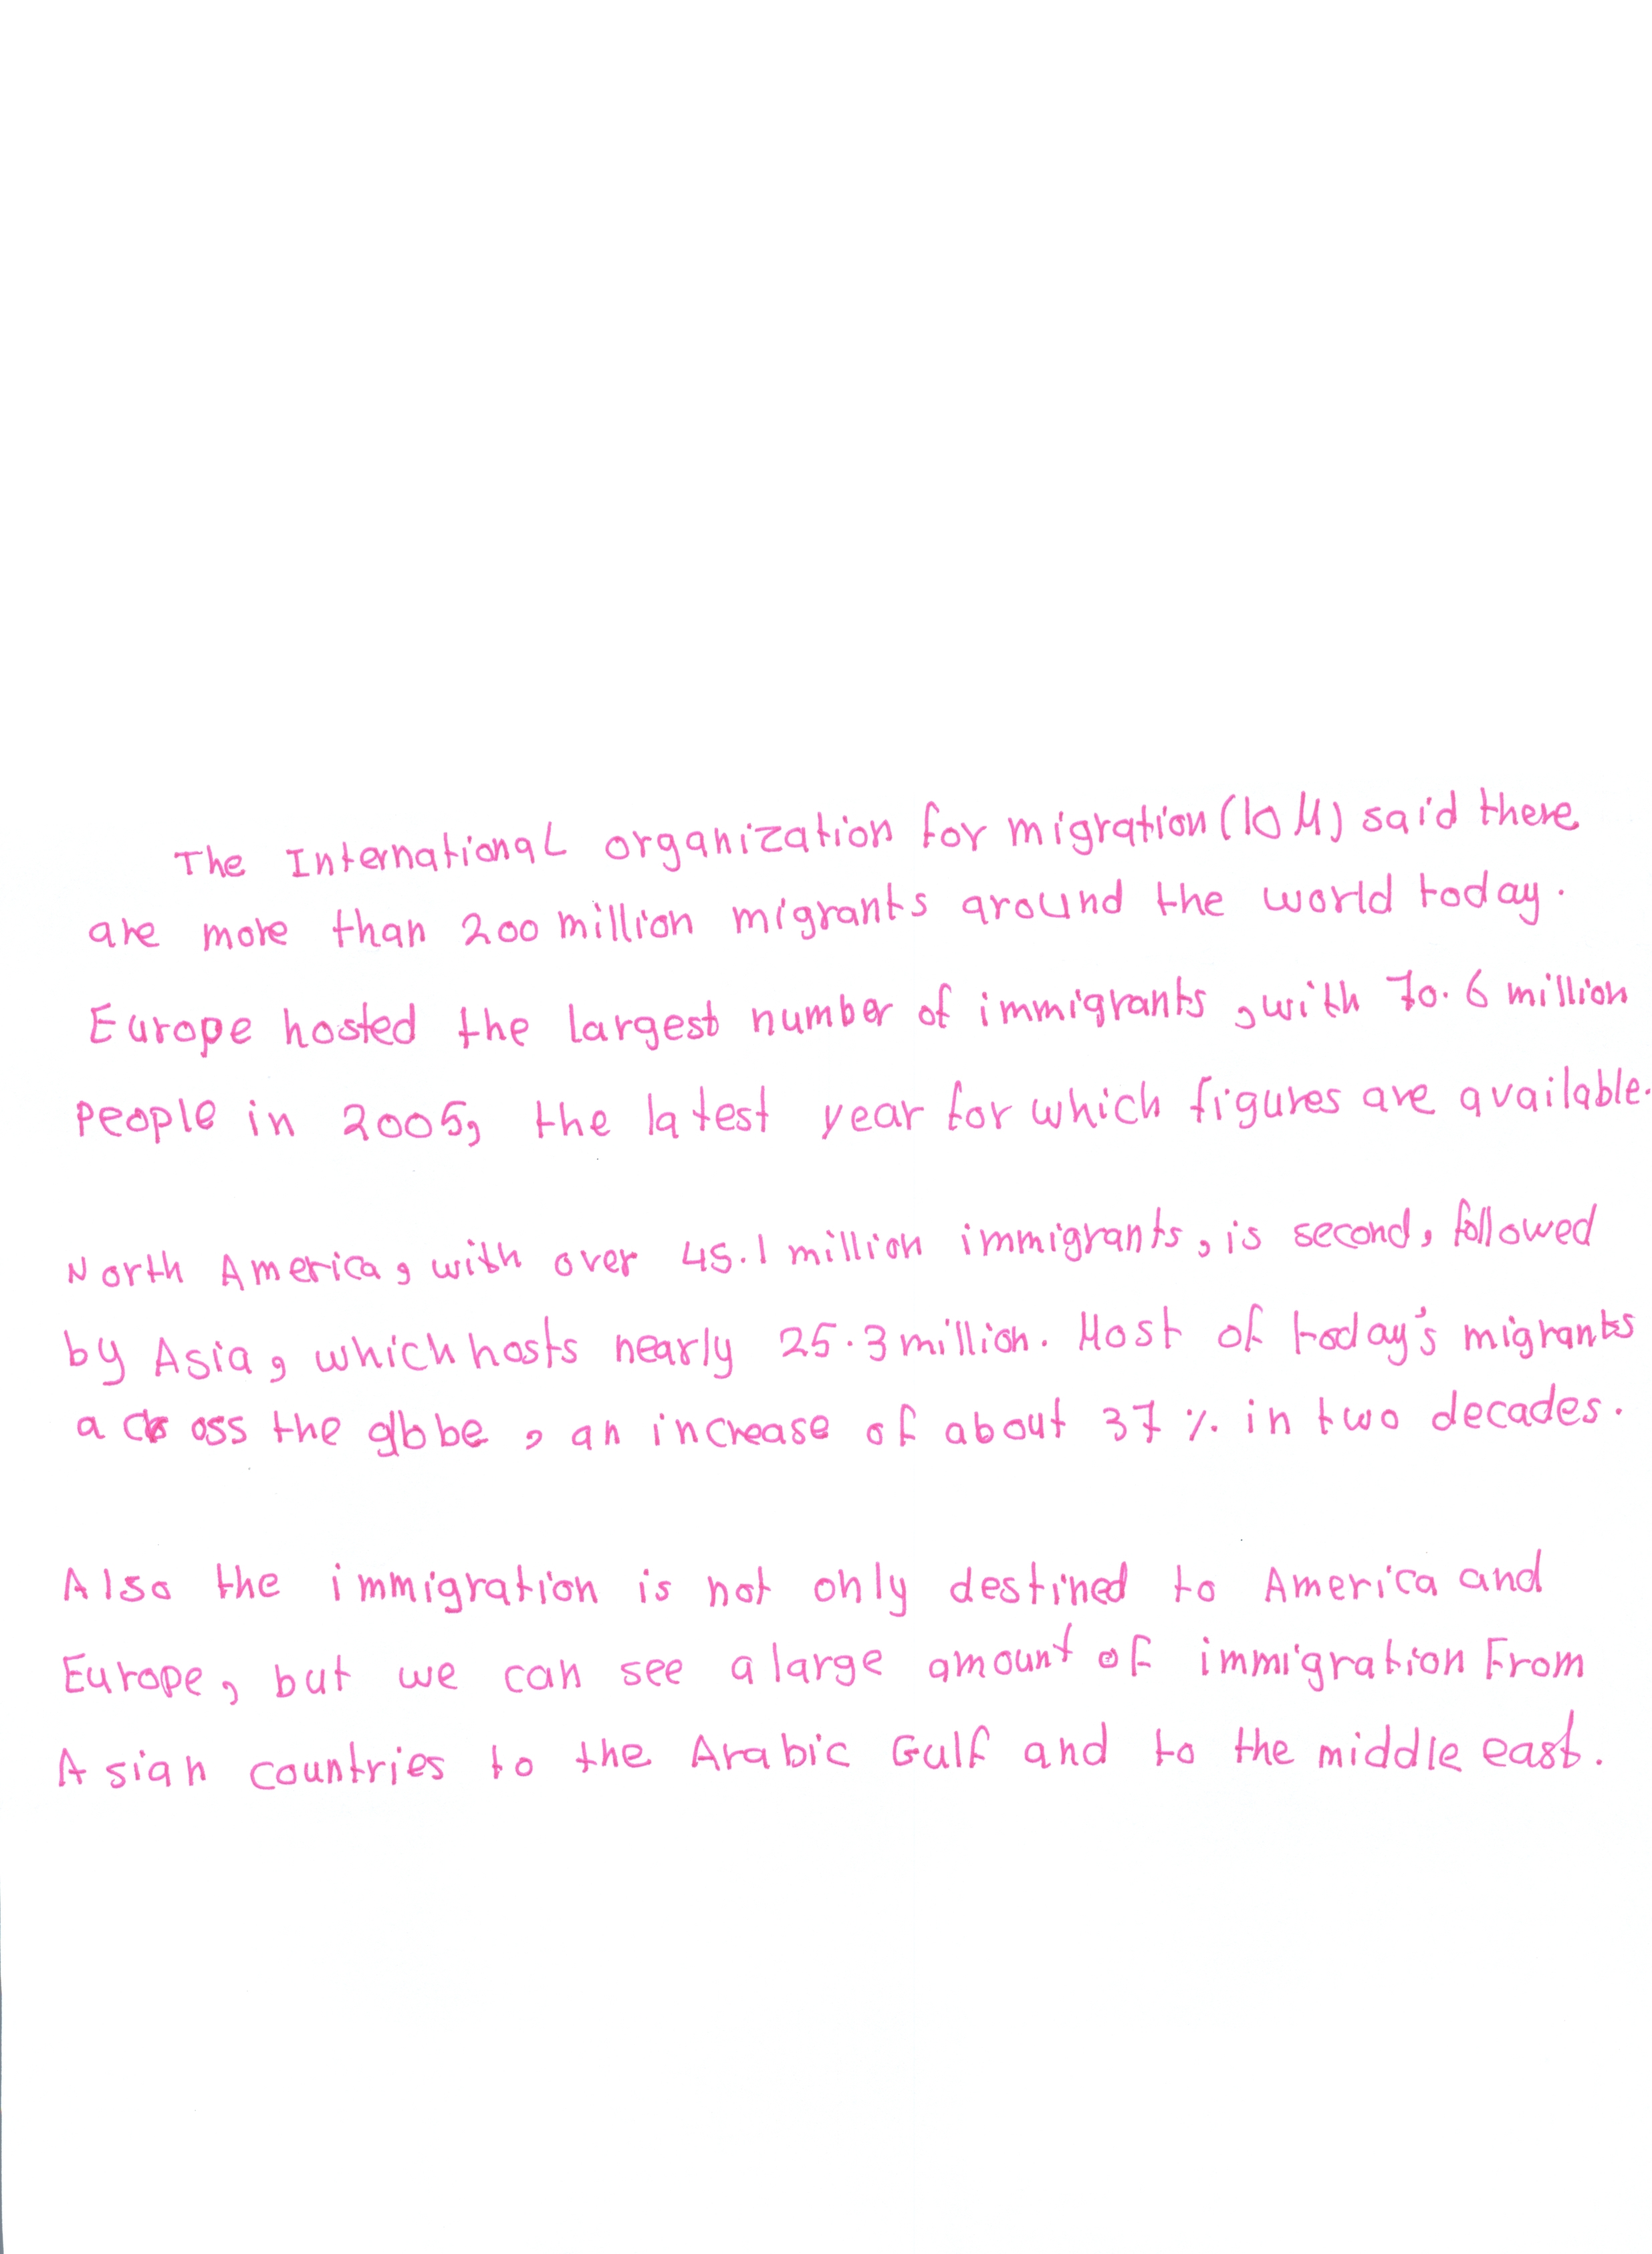 The International organization for migration (IOM) said there
are more than 200 million migrants around the world today.
Europe hosted the largest number of immigrants , with 70.6 million
People in 2005, the latest year for which figures are available.
North America, with over 45.1 million immigrants, is second, followed
by Asia, which hosts nearly 25.3 million. Most of today's migrants
across the globe , an increase of about 37 % in two decades.
Also the immigration is not only destined to America and
Europe, but we can see a large amount of immigration From
Asian countries to the Arabic Gulf and to the middle east.